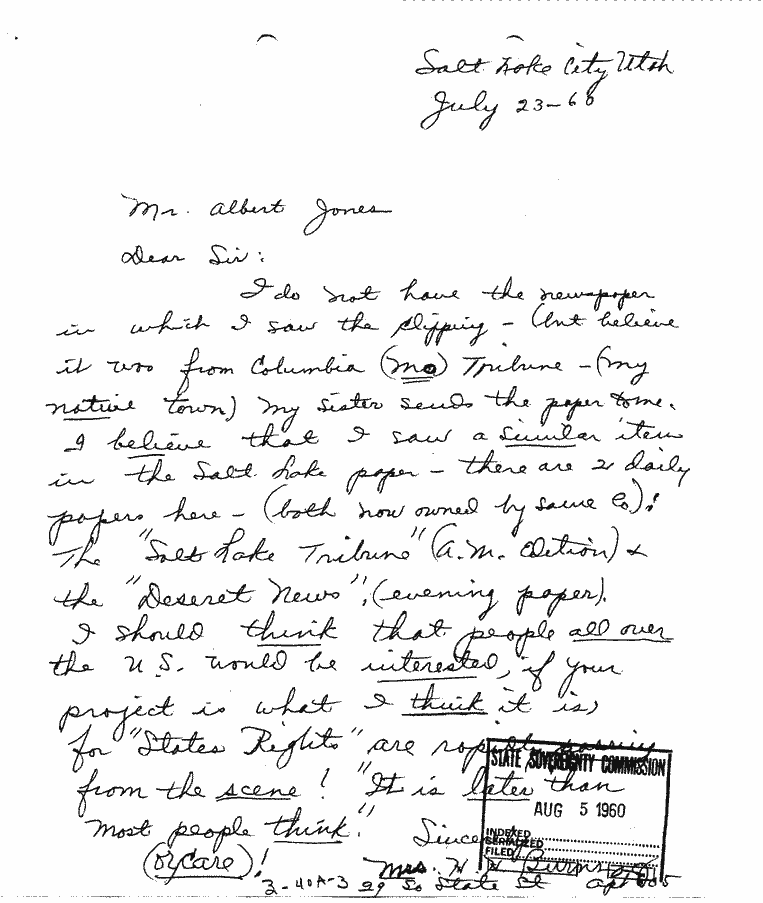 Salt Lake City Utah
July 23-60
Mr. Albert Jones
Dear Sir:
I do not have the newspaper
in which I saw the clipping - (but believe
it was from Columbia (Mo) Tribune - (my
native town) My sister sends the paper to me.
I believe that I saw a similar item
in the Salt Lake paper - there are 2 daily
papers here - (both now owned by same Co.)!
The "Salt Lake Tribune" (A.M. Edition) &
the "Deseret News", (evening paper).
I should think that people all over
the U.S. would be interested, if your
project is what I think it is,
for "States Rights" are rapidly passing
from the scene! "It is later than
most people think."
(or care)!
Sincerely
Mrs. W. W. Burns
29 So State St Apt
3-40A-3
STATE SOVEREIGNTY COMMISSION
AUG 5 1960
INDEXED
SERIALIZED
FILED